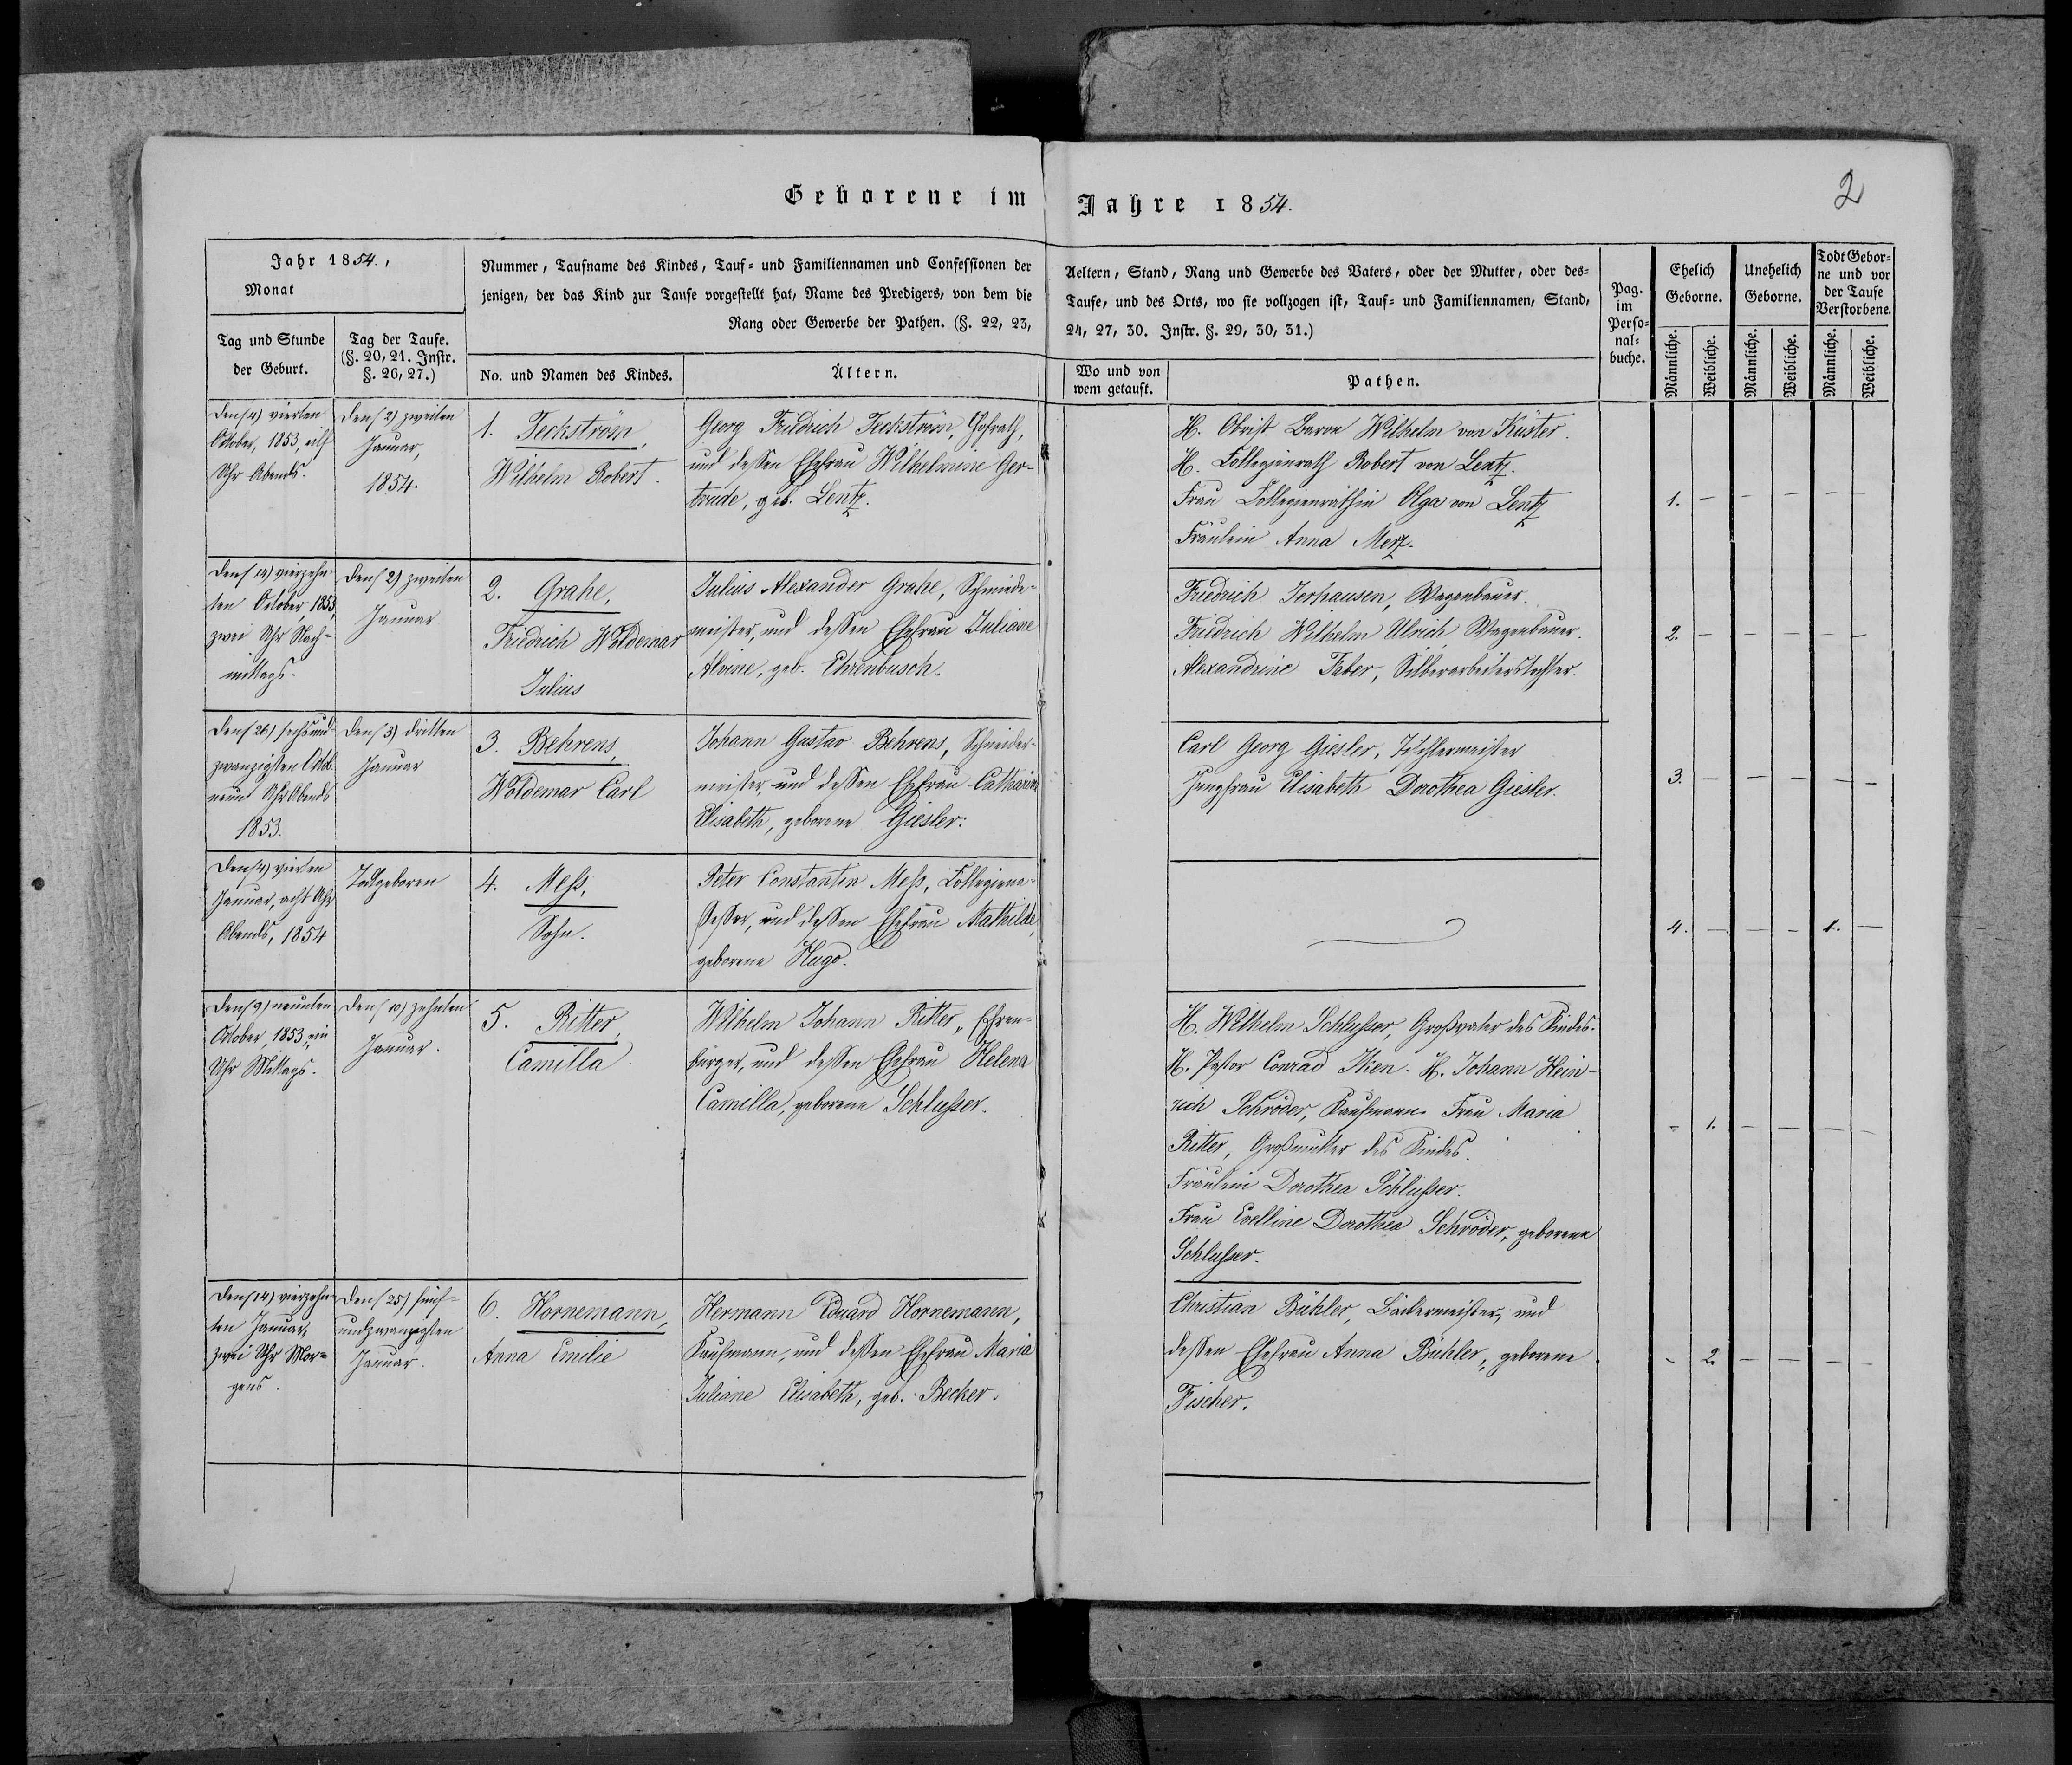 Geborene im Jahre 1854.
2
Jahr 1854.,
Monat
Tag und Stunde
der Geburt.
Tag der Taufe.
(§. 20, 21. Instr.
§. 26, 27.)
Nummer, Taufname des Kindes, Tauf- und Familiennamen und Confessionen der
jenigen, der das Kind zur Taufe vorgestellt hat, Name des Predigers, von dem die
Rang oder Gewerbe der Pathen. (§. 22, 23,
No. und Namen des Kindes.
Ältern.
Aeltern, Stand, Rang und Gewerbe des Vaters, oder der Mutter, oder des-
Taufe, und des Orts, wo sie vollzogen ist, Tauf- und Familiennamen, Stand,
24, 27, 30. Instr. §. 29, 30, 31.)
Wo und von
wem getauft.
Pathen.
Pag.
im
Perso-
nal-
buche.
Ehelich
Geborne.
Unehelich
Geborne.
Todt Gebor-
ne und vor
der Taufe
Verstorbene.
Männliche.
Weibliche.
Männliche.
Weibliche.
Männliche.
Weibliche.
Den (4) vierten
October, 1853, eilf
Uhr Abends.
Den (2) zweiten
Januar,
1854.
1. Teckström,
Wilhelm Robert.
Georg Friedrich Teckström, Hofrath,
und dessen Ehefrau Wilhelmine Ger-
trude, geb. Lentz.
H. Obrist Baron Wilhelm von Küster.
H. Collegienrath Robert von Lentz.
Frau Collegienräthin Olga von Lentz
Fräulein Anna Merz.
1. — — — — —
Den (14) vierzehn-
ten October, 1853,
zwei Uhr Nach-
mittags.
Den (2) zweiten
Januar
2. Grahe,
Friedrich Woldemar
Julius
Julius Alexander Grahe, Schmiede-
meister, und dessen Ehefrau Juliane
Alvine, geb. Ehrenbusch.
Friedrich Ierhausen, Wagenbauer.
Friedrich Wilhelm Ulrich Wagenbauer.
Alexandrine Faber, Silberarbeiterstochter.
2. — — — — —
Den (26) sechsund-
zwanzigsten Octob.
neun Uhr Abends
1853.
Den (3) dritten
Januar
3. Behrens,
Woldemar Carl
Johann Gustav Behrens, Schneider-
meister, und dessen Ehefrau Catharina
Elisabeth, geborene Giesler.
Carl Georg Giesler, Tischlermeister
Jungfrau Elisabeth Dorothea Giesler.
3. — — — — —
Den (4) vierten
Januar, acht Uhr
Abends, 1854
Todtgeboren
4. Meß,
Sohn.
Peter Constantin Meß, Collegiena-
ssessor, und dessen Ehefrau Mathilde,
geborene Hugo.
4. — — — 1. —
Den (9) neunten
October, 1853, ein
Uhr Mittags.
Den (10) zehnten
Januar.
5. Ritter,
Camilla.
Wilhelm Johann Ritter, Ehren-
bürger, und dessen Ehefrau Helena
Camilla, geborene Schlusser.
H. Wilhelm Schlusser, Großvater des Kindes.
H. Pastor Conrad Iken. H. Johann Hein-
rich Schröder, Kaufmann. Frau Maria
Ritter, Großmutter des Kindes.
Fräulein Dorothea Schlüsser.
Frau Evelline Dorothea Schröder, geborene
Schlusser.
- 1. — — — —
Den (14) vierzehn-
ten Januar,
zwei Uhr Mor-
gens.
Den (25) fünf-
undzwanzigsten
Januar.
6. Hornemann,
Anna Emilie
Hermann Eduard Hornemann,
Kaufmann, und dessen Ehefrau Maria
Juliane Elisabeth, geb. Becker.
Christian Bühler, Bäckermeister, und
dessen Ehefrau Anna Bühler, geborene
Fischer.
- 2. — — — —